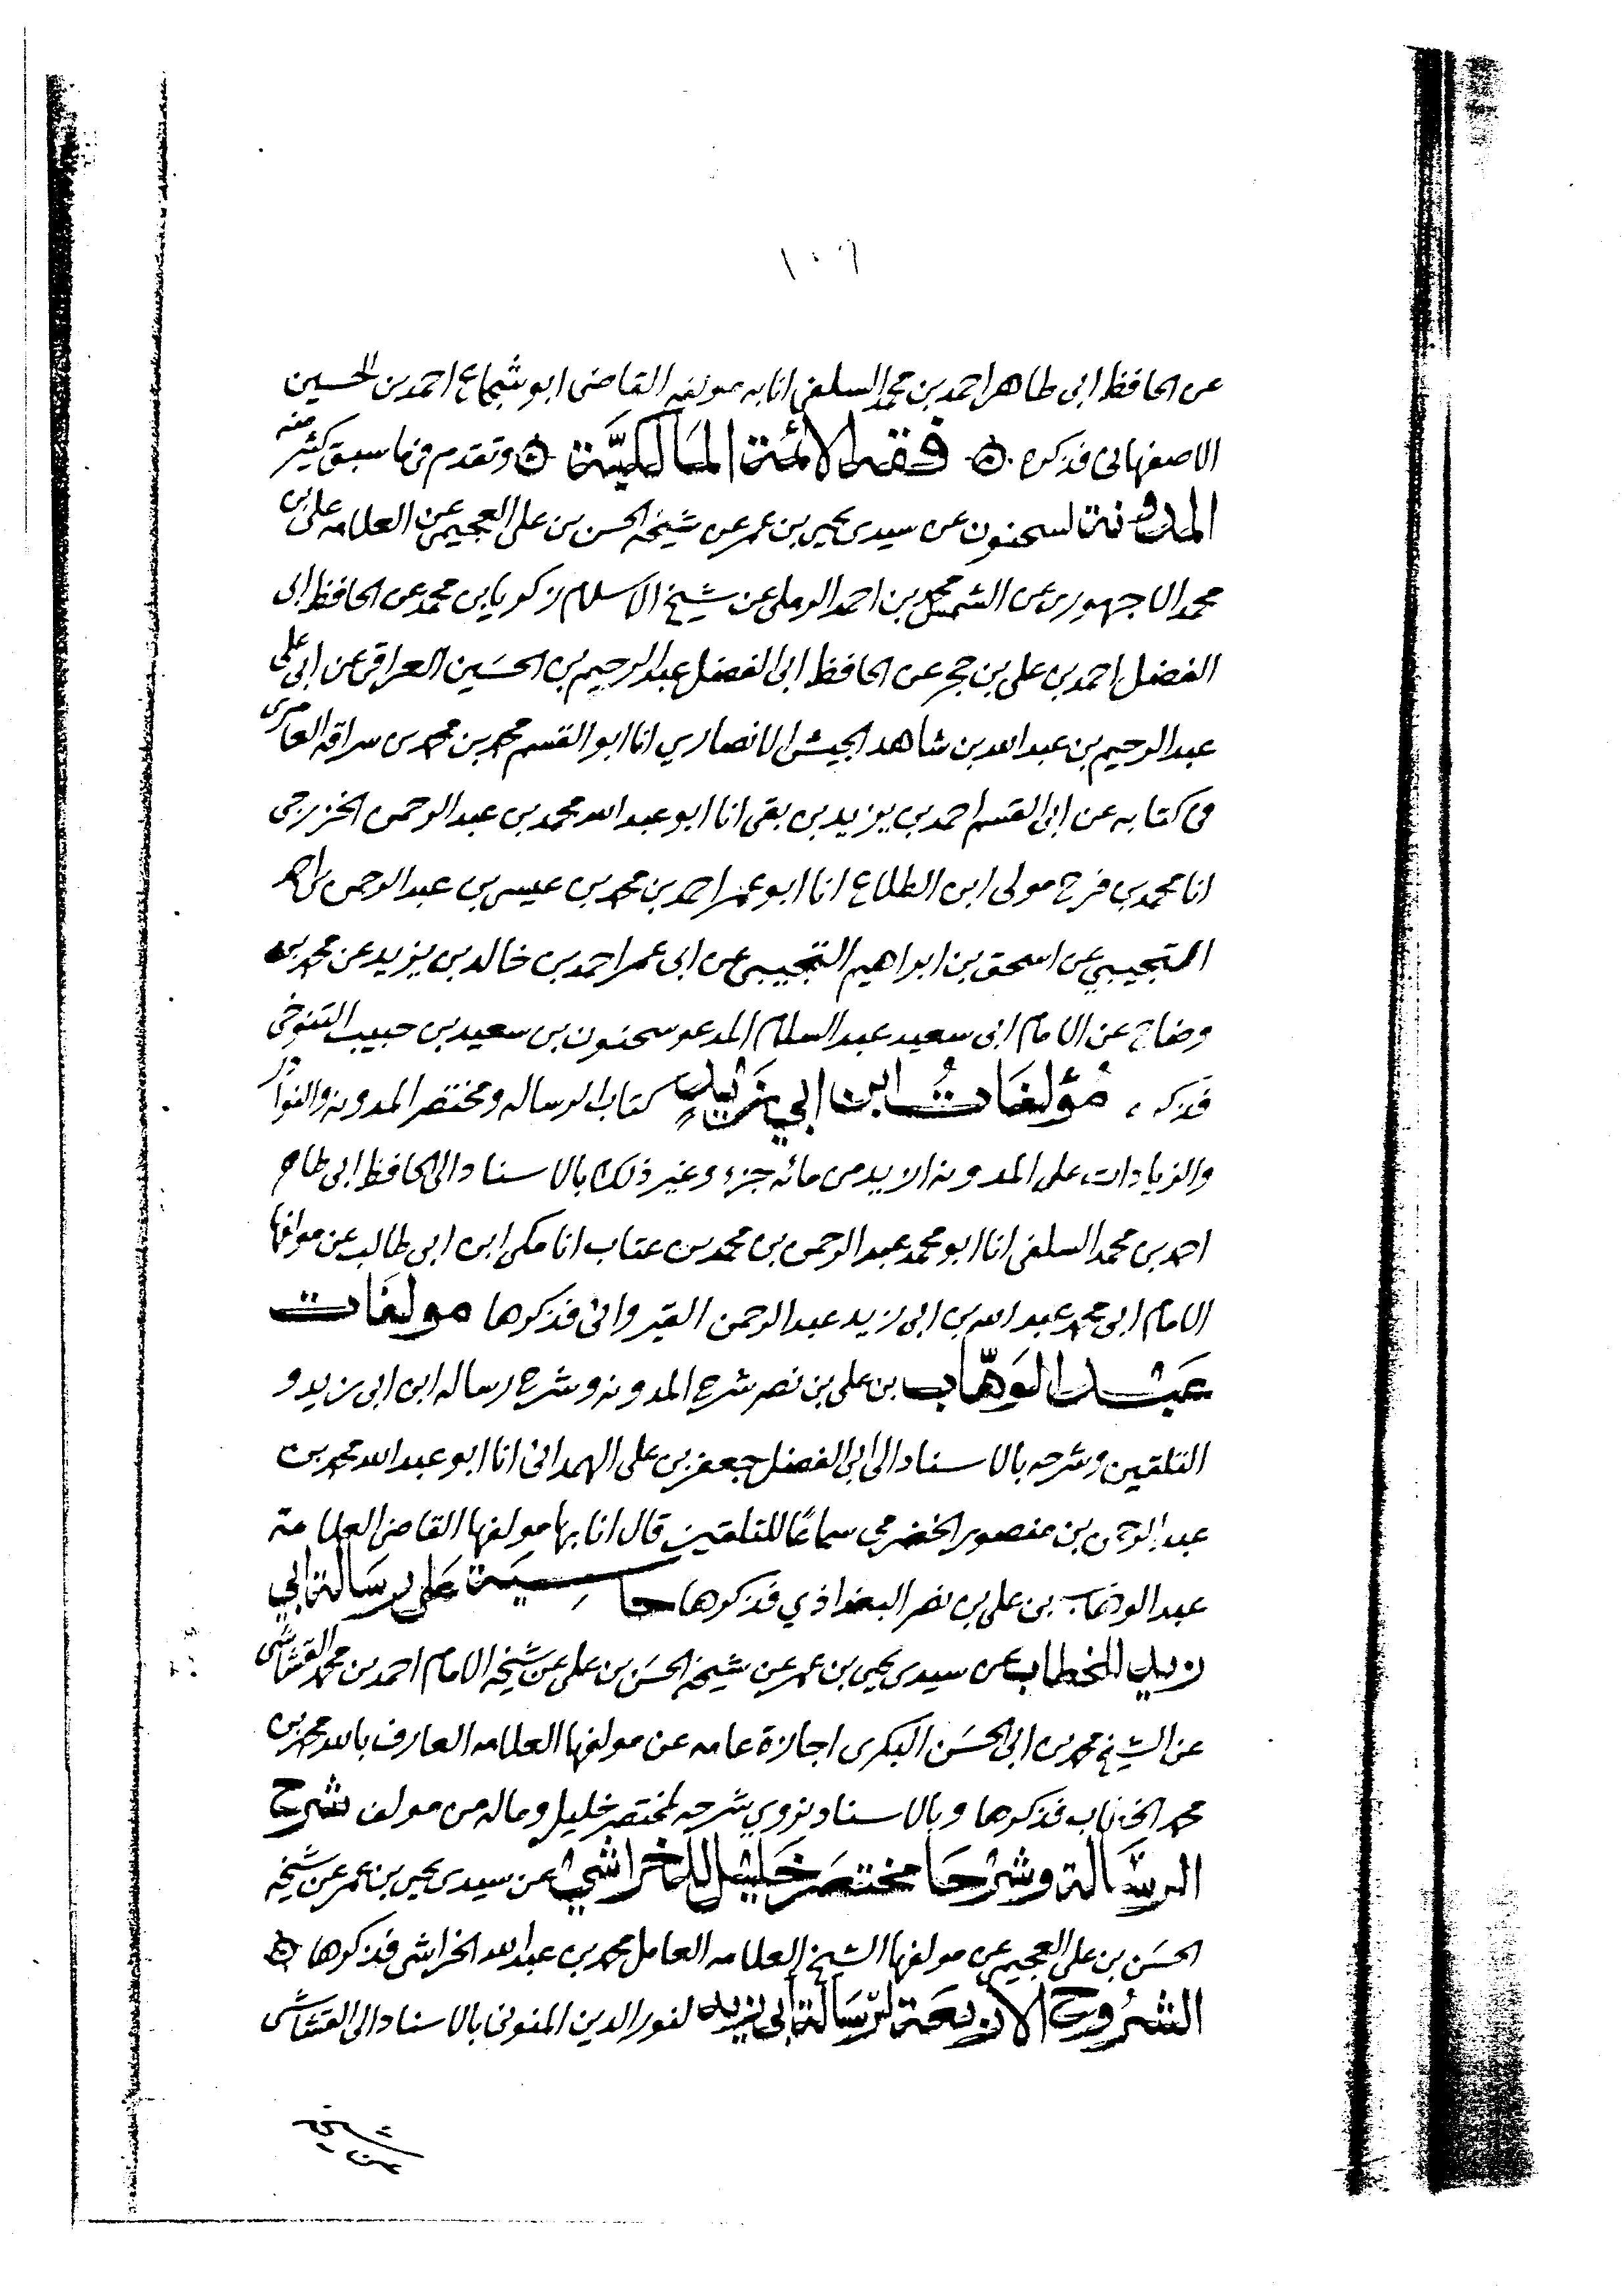 ١٠٦
عن الحافظ ابى طاهر احمد بن محمد السلفى انا به مولفه القاضى ابو شجاع احمد بن الحسين
الاصفهانى فذكره فقه الائمة المالكيَّة وتقدم فيما سبق كثير منه
المدونة لسحنون عن سيدى يحيى بن عمر عن شيخه الحسن بن على العجيمى عن العلامه على بن
محمد الاجهورى عن الشمس محمد بن احمد الرملى عن شيخ الاسلام زكريا بن محمد عن الحافظ ابى
الفضل احمد بن على بن حجر عن الحافظ ابى الفضل عبد الرحيم بن الحسَين العراقى عن ابى على
عبد الرحيم بن عبد الله بن شاهد الجيش الانصاري انا ابو القسم محمد بن محمد بن سراقه العامرى
فى كتابه عن ابى القسم احمد بن يزيد بن بقى انا ابو عبد الله محمد بن عبد الرحمن الخزرجى
انا محمد بن فرج مولى ابن الطلاع انا ابو عمر احمد بن محمد بن عيسى بن عبد الرحمن بن احمد
التجيبي عن اسحق بن ابراهيم التجيبى عن ابى عمر احمد بن خالد بن يزيد عن محمد بن
وضاح عن الامام ابى سعيد عبد السلام المدعو سحنون بن سعيد بن حبيب التنوخى
فذكره مُؤلفَاتُ ابن ابي زَيْدٍ كتاب الرساله ومختصر المدونه والنوادر
والزيادات على المدونه ازيد من مائه جزء وغير ذلك بالاسناد الى الحافظ ابى طاهر
احمد بن محمد السلفى انا ابو محمد عبد الرحمن بن محمد بن عتاب انا مكى ابن ابى طالب عن مولفها
الامام ابى محمد عبد الله بن ابى زيد عبد الرحمن القيروانى فذكرها مولفَات
عَبْد الوَهَّاب بن على بن نصر شرح المدونه وشرح رساله ابن ابى زيد و
التلقين وشرحه بالاسناد الى ابى الفضل جعفر بن على الهمدانى انا ابو عبد الله محمد بن
عبد الرحمن بن منصور الخضرمى سماعًا للتلقين قال انا بها مولفها القاضى العلامة
عبد الوهاب بن على بن نصر البغداذي فذكرها حاشِيَة عَلى رسَالة ابي
زيد للخطاب عن سيدى يحيى بن عمر عن شيخه الحسَن بن على عن شيخه الامام احمد بن محمد القشاشى
عن الشيخ محمد بن ابى الحسَن البكرى اجازة عامه عن مولفها العلامه العارف بالله محمد بن
محمد الخطاب فذكرها وبالاسناد نروي شرحه لمختصر خليل وماله من مولف شرح
الرسَالة وشرْحَا مختصَر خَليْل للخراشيْ عن سيدى يحيى بن عمر عن شيخه
الحسَن بن على العجيمى عن مولفها الشيخ العلامه العامل محمد بن عبد الله الخراشى فذكرها
الشرُوح الاربعَة لرسَالة ابى زيد لنور الدين المنوفى بالاسناد الى القشاشى
عن شيخه